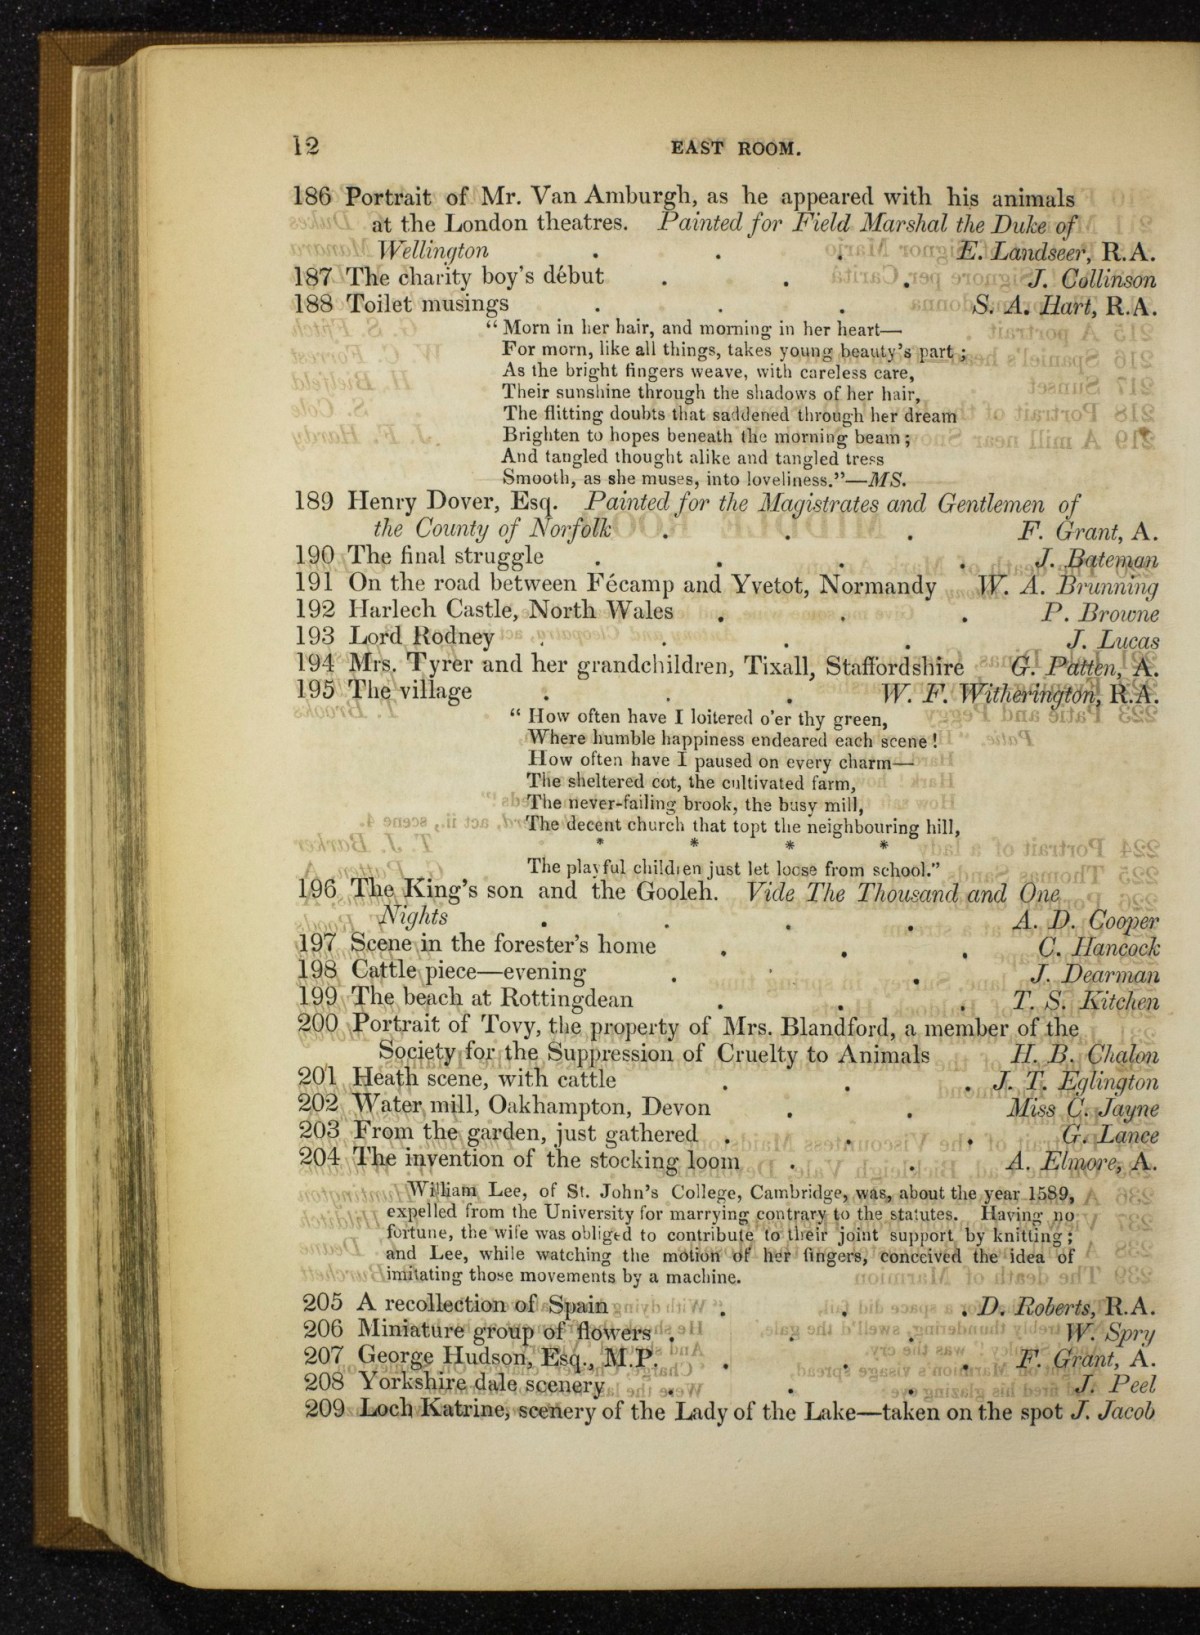 12 EAST ROOM.
186 Portrait of Mr. Van Amburgh, as he appeared with his animals
at the London theatres. Painted for Field Marshal the Duke of
Wellington . . . E. Landseer, R.A.
187 The charity boy's début . . . J. Collinson
188 Toilet musings . . . S. A. Hart, R.A.
“ Morn in her hair, and morning in her heart—
For morn, like all things, takes young beauty's part ;
As the bright fingers weave, with careless care,
Their sunshine through the shadows of her hair,
The flitting doubts that saddened through her dream
Brighten to hopes beneath the morning beam ;
And tangled thought alike and tangled tress
Smooth, as she muses, into loveliness.”—MS.
189 Henry Dover, Esq. Painted for the Magistrates and Gentlemen of
the County of Norfolk . . . F. Grant, A.
190 The final struggle . . . . J. Bateman
191 On the road between Fécamp and Yvetot, Normandy W. A. Brunning
192 Harlech Castle, North Wales . . . P. Browne
193 Lord Rodney . . . . J. Lucas
194 Mrs. Tyrer and her grandchildren, Tixall, Staffordshire G. Patten, A.
195 The village . . . W. F. Witherington, R.A.
“ How often have I loitered o'er thy green,
Where humble happiness endeared each scene !
How often have I paused on every charm—
The sheltered cot, the cultivated farm,
The never-failing brook, the busy mill,
The decent church that topt the neighbouring hill,
* * * *
The playful children just let loose from school.”
196 The King's son and the Gooleh. Vide The Thousand and One
Nights . . . . A. D. Cooper
197 Scene in the forester's home . . . C. Hancock
198 Cattle piece—evening . . . J. Dearman
199 The beach at Rottingdean . . . T. S. Kitchen
200 Portrait of Tovy, the property of Mrs. Blandford, a member of the
Society for the Suppression of Cruelty to Animals H. B. Chalon
201 Heath scene, with cattle . . . J. T. Eglington
202 Water mill, Oakhampton, Devon . . Miss C. Jayne
203 From the garden, just gathered . . . G. Lance
204 The invention of the stocking loom . . A. Elmore, A.
William Lee, of St. John's College, Cambridge, was, about the year 1589,
expelled from the University for marrying contrary to the statutes. Having no
fortune, the wife was obliged to contribute to their joint support by knitting ;
and Lee, while watching the motion of her fingers, conceived the idea of
imitating those movements by a machine.
205 A recollection of Spain . . . D. Roberts, R.A.
206 Miniature group of flowers . . . W. Spry
207 George Hudson, Esq., M.P. . . . F. Grant, A.
208 Yorkshire dale scenery . . . J. Peel
209 Loch Katrine, scenery of the Lady of the Lake—taken on the spot J. Jacob